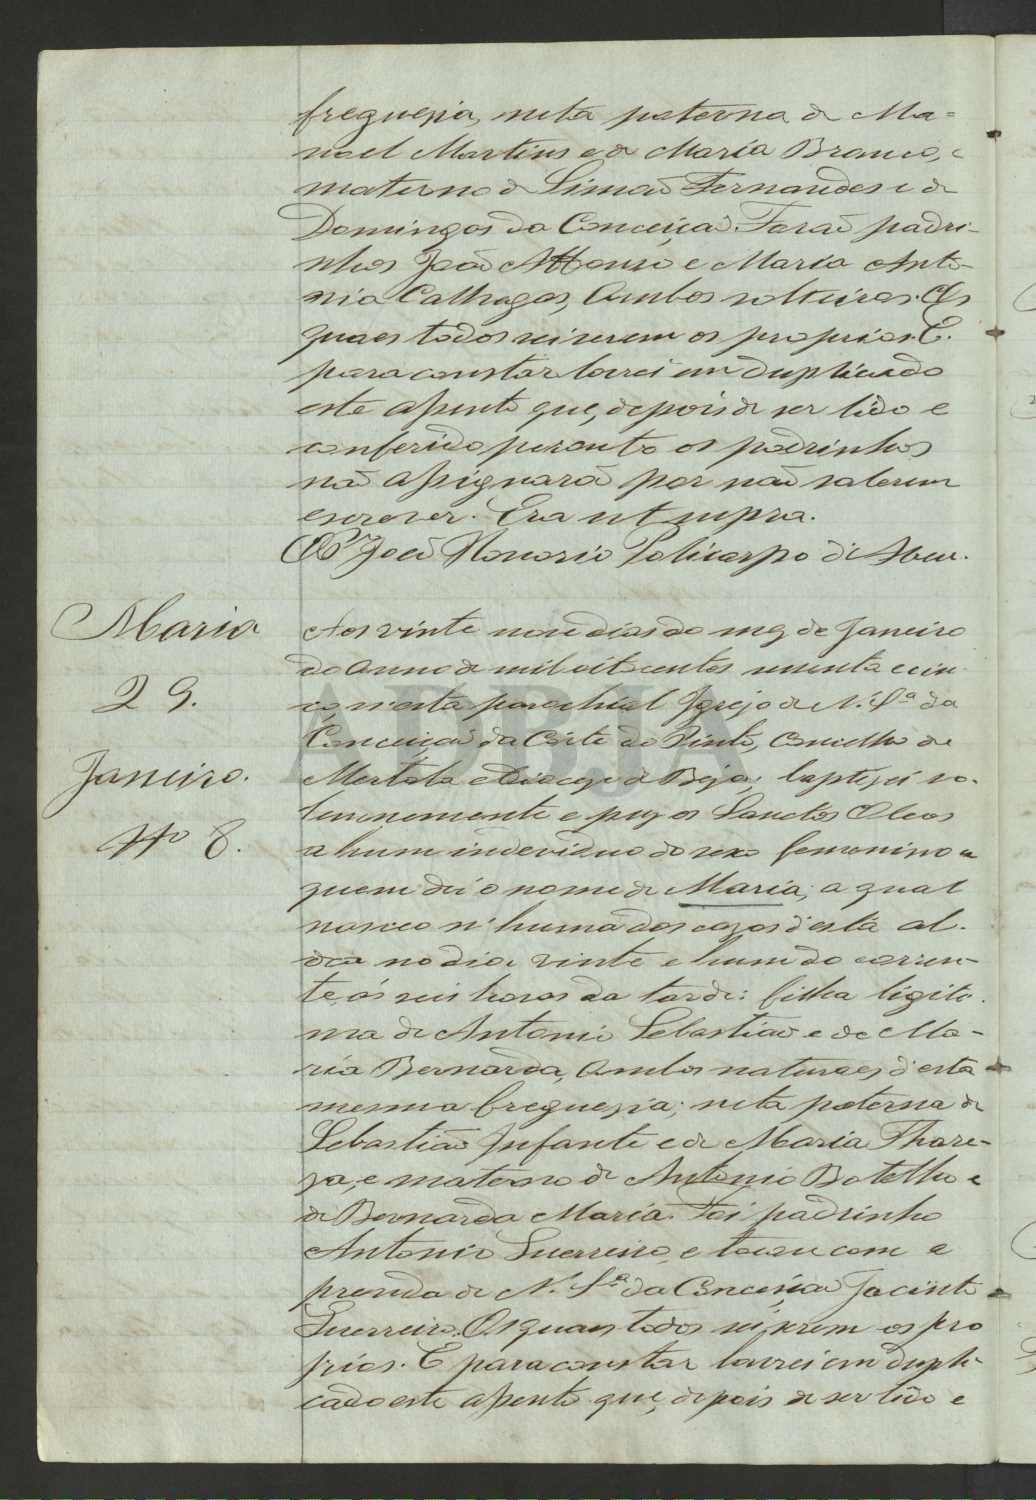 freguesia, neta paterna de Ma=
noel Martins e de Maria Branca, e
materna de Simaõ Fernandes e de
Domingas da Conceiçaõ. Foraõ padri-
nhos Joaõ Affonso e Maria Anto-
nia Calhagas, Ambos solteiros. Os
quaes todos sei serem os proprios. E
para constar lavrei em duplicado
este assento que, depois de ser lido e
conferido perante os padrinhos
naõ assignaraõ por naõ saberem
escrever. Era ut supra.
O P.r Joaõ Honorio Policarpo d'Abreu.
Maria
29.
Janeiro.
Nº 8.
Aos vinte nove dias do mez de Janeiro
do Anno de mil oito centos secenta e cin-
co, n'esta parochial Igreja de N. Sª da
Conceiçaõ da Corte do Pinto, Concelho de
Mertola e Dioceze de Beja, baptizei so-
lemnemente e puz os Sanctos Oleos
a hum individuo do sexo femenino a
quem dei o nome de Maria; a qual
nasceo n'huma das cazas d'esta al-
dea no dia vinte e hum do corren-
te, ás seis horas da tarde: filha legiti-
ma de Antonio Sebastiaõ e de Ma-
ria Bernarda, Ambos naturaes d'esta
mesma freguesia; neta paterna de
Sebastiaõ Infante e de Maria Thare-
za, e materna de Antonio Botelho e
de Bernarda Maria. Foi padrinho
Antonio Guerreiro, e tocou com a
prenda de N. Sª da Conceiçaõ Jacinto
Guerreiro. Os quaes todos sei serem os pro
prios. E para constar lavrei em dupli-
cado este assento que, depois de ser lido e
ADBJA